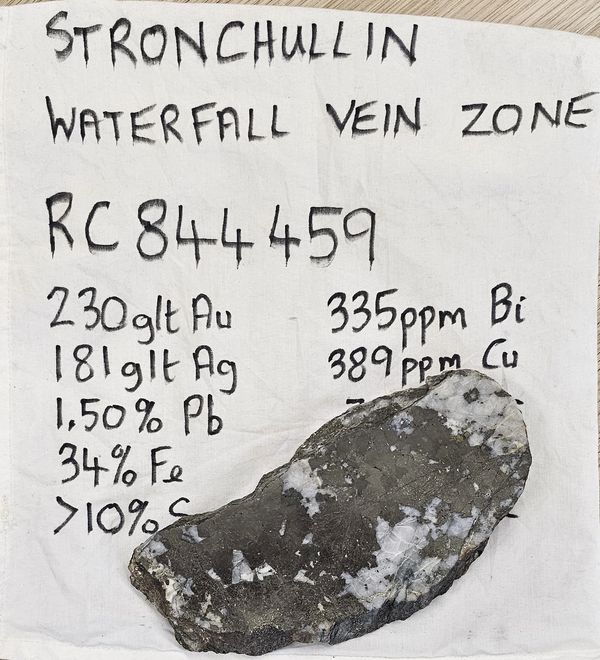 STRONCHULLIN
WATERFALL VEIN ZONE
RC844459
230g/t Au
181g/t Ag
1.50% Pb
34% Fe
>10% S
335ppm Bi
389ppm Cu